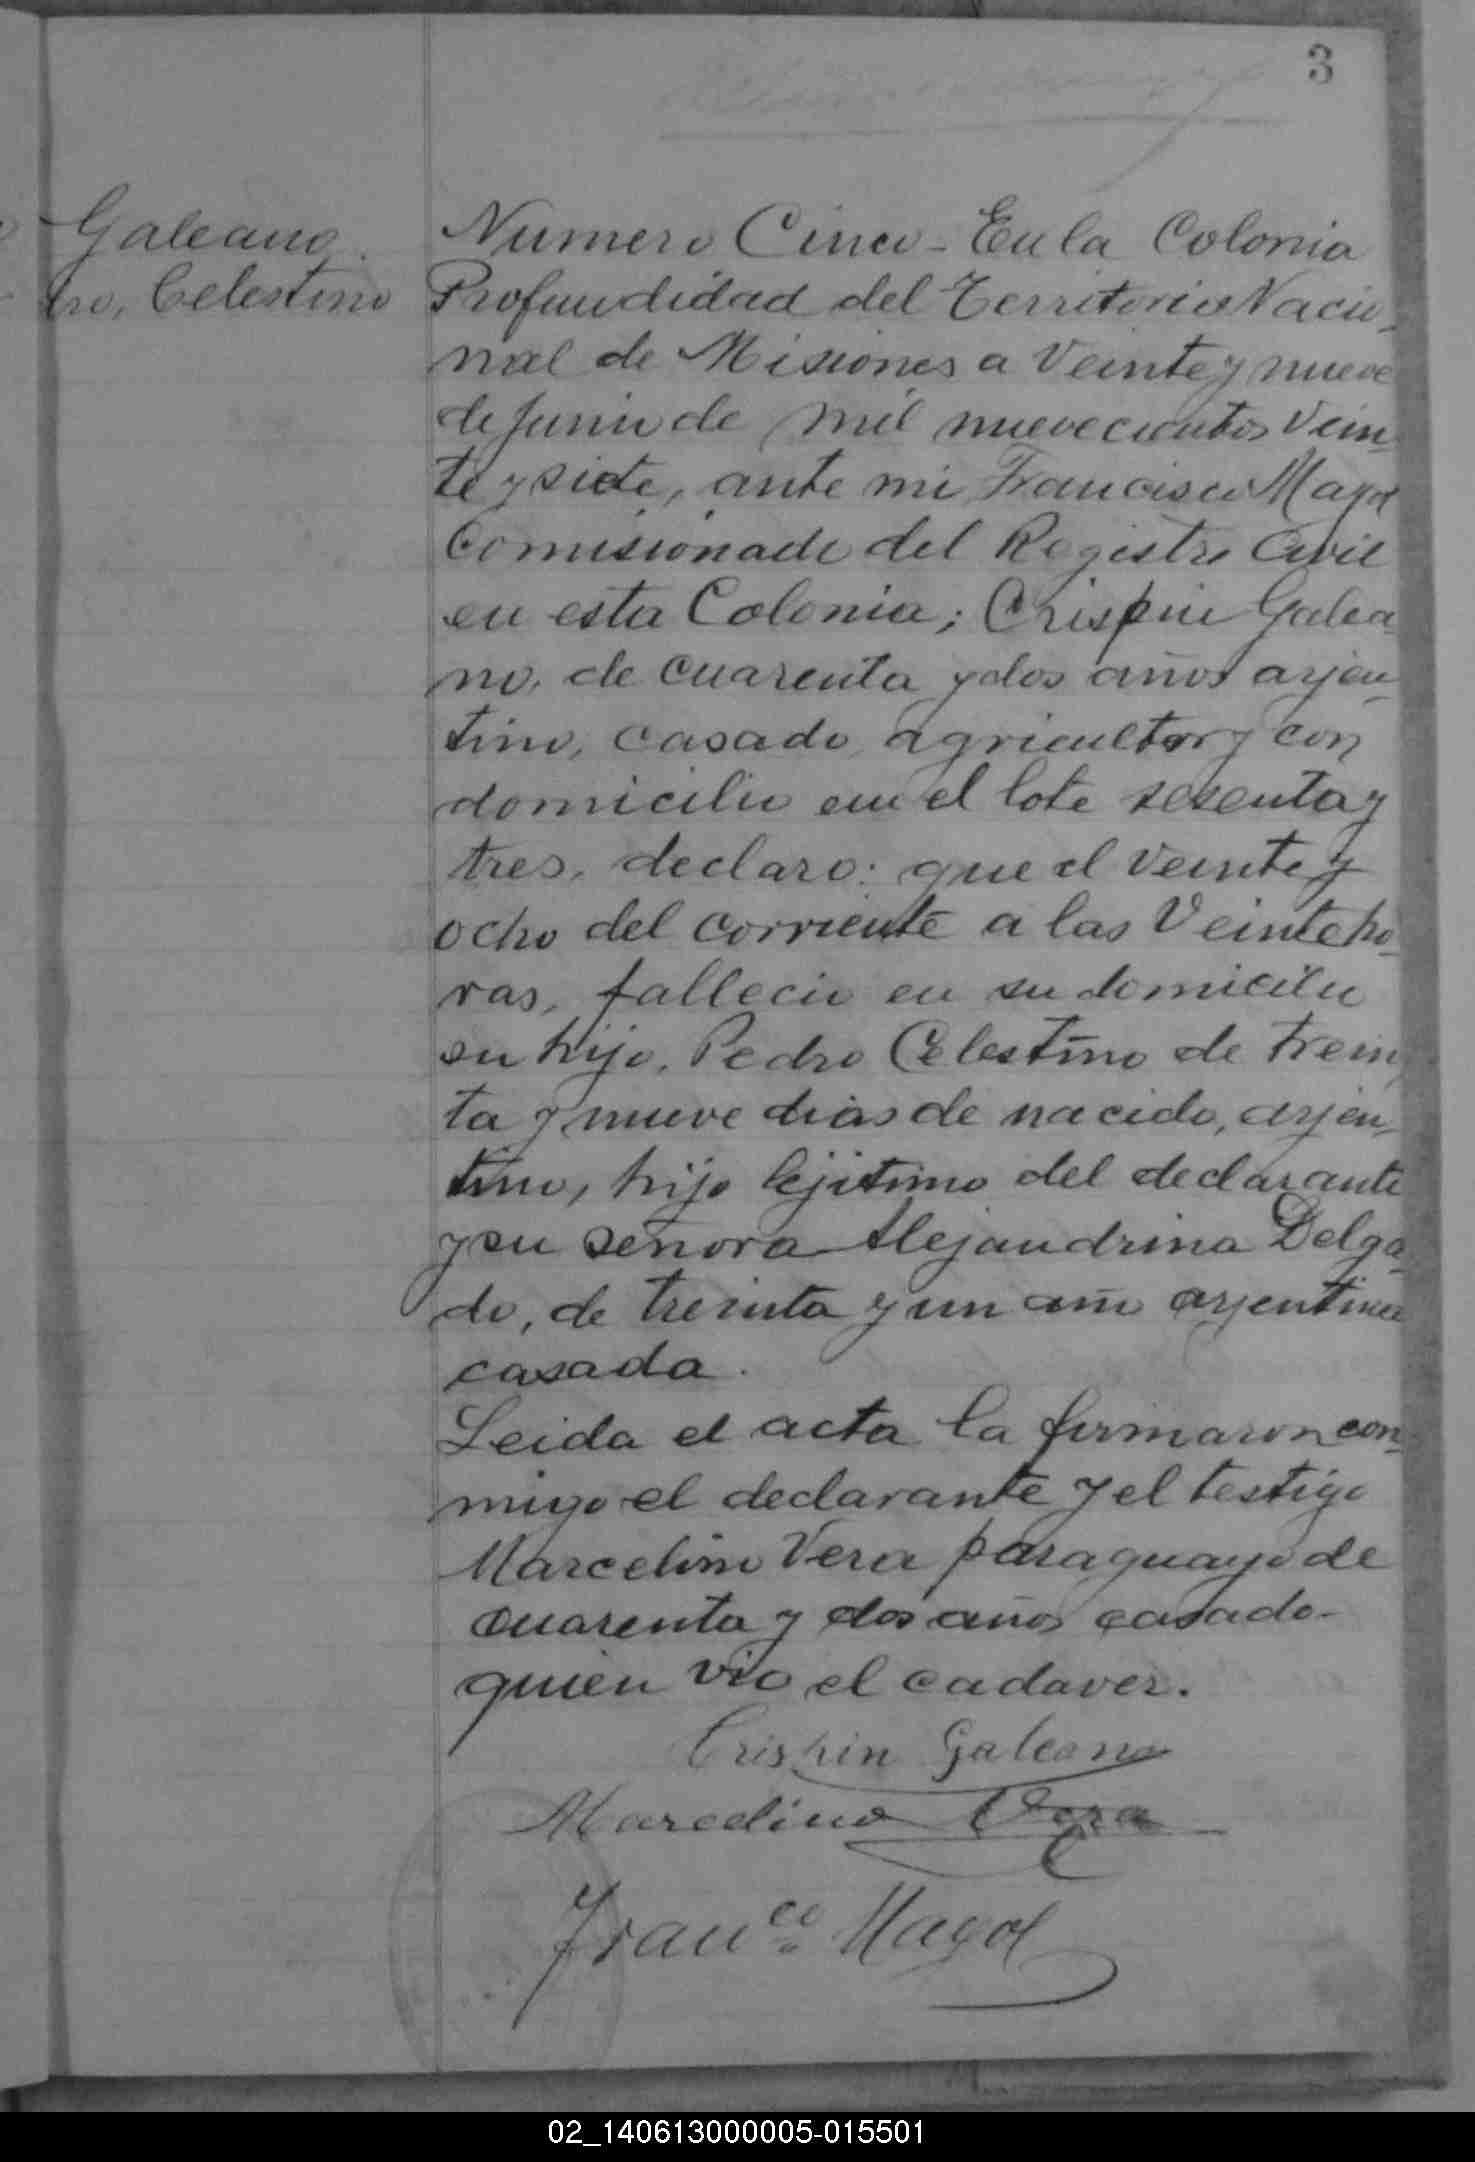 3
Galeano
dro, Celestino
Numero Cinco - En la Colonia
Profundidad del Territorio Nacio-
nal de Misiones a Veinte y nueve
de Junio de mil nuevecientos Vein-
te y siete, ante mi Francisco Mayol
Comisionado del Registro Civil
en esta Colonia; Crispin Galea-
no, de cuarenta y dos años arjen-
tino, casado, agricultor y con
domicilio en el lote sesenta y
tres, declaro: que el veinte y
ocho del corriente a las Veinte ho-
ras, fallecio en su domicilio
su hijo, Pedro Celestino de trein-
ta y nueve dias de nacido, arjen-
tino, hijo lejitimo del declarante
y su señora Alejandrina Delga-
do, de treinta y un año arjentina
casada.
Leida el acta la firmaron con-
migo el declarante y el testigo
Marcelino Vera paraguayo de
cuarenta y dos años casado-
quien vio el cadaver.
Crispin Galeano
Marcelino Vera
Franco. Mayol
02_140613000005-015501